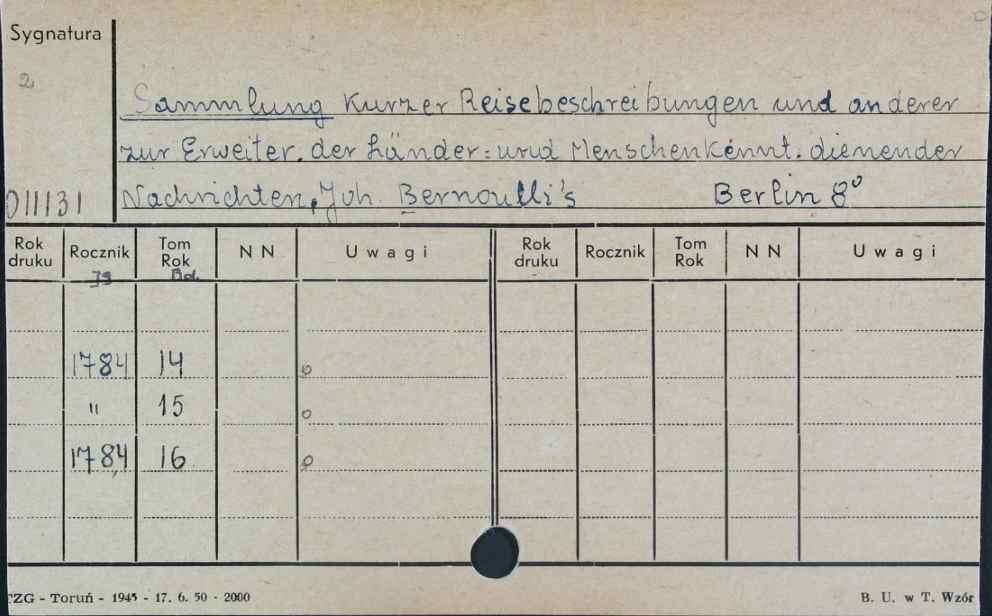 Sygnatura
2
Sammlung kurzer Reisebeschreibungen und anderer
zur Erweiter. der Länder- und Menschenkennt. dienender
011131 Nachrichten, Joh. Bernoulli's Berlin 8°
Rok druku Rocznik Tom Rok N N Uwagi Rok druku Rocznik Tom Rok N N Uwagi
Jg Bd.
1784 14 o
" 15 o
1784 16 o
TZG - Toruń - 1945 - 17. 6. 50 - 2000 B. U. w T. Wzór